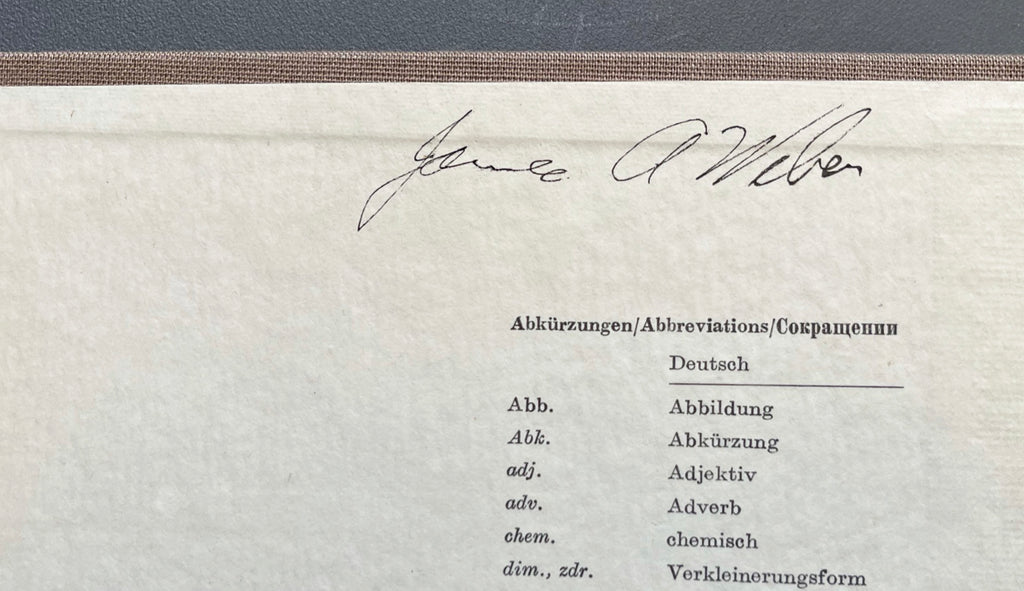 James A Weber
Abkürzungen/Abbreviations/Сокращении
Deutsch
Abb. Abbildung
Abk. Abkürzung
adj. Adjektiv
adv. Adverb
chem. chemisch
dim., zdr. Verkleinerungsform